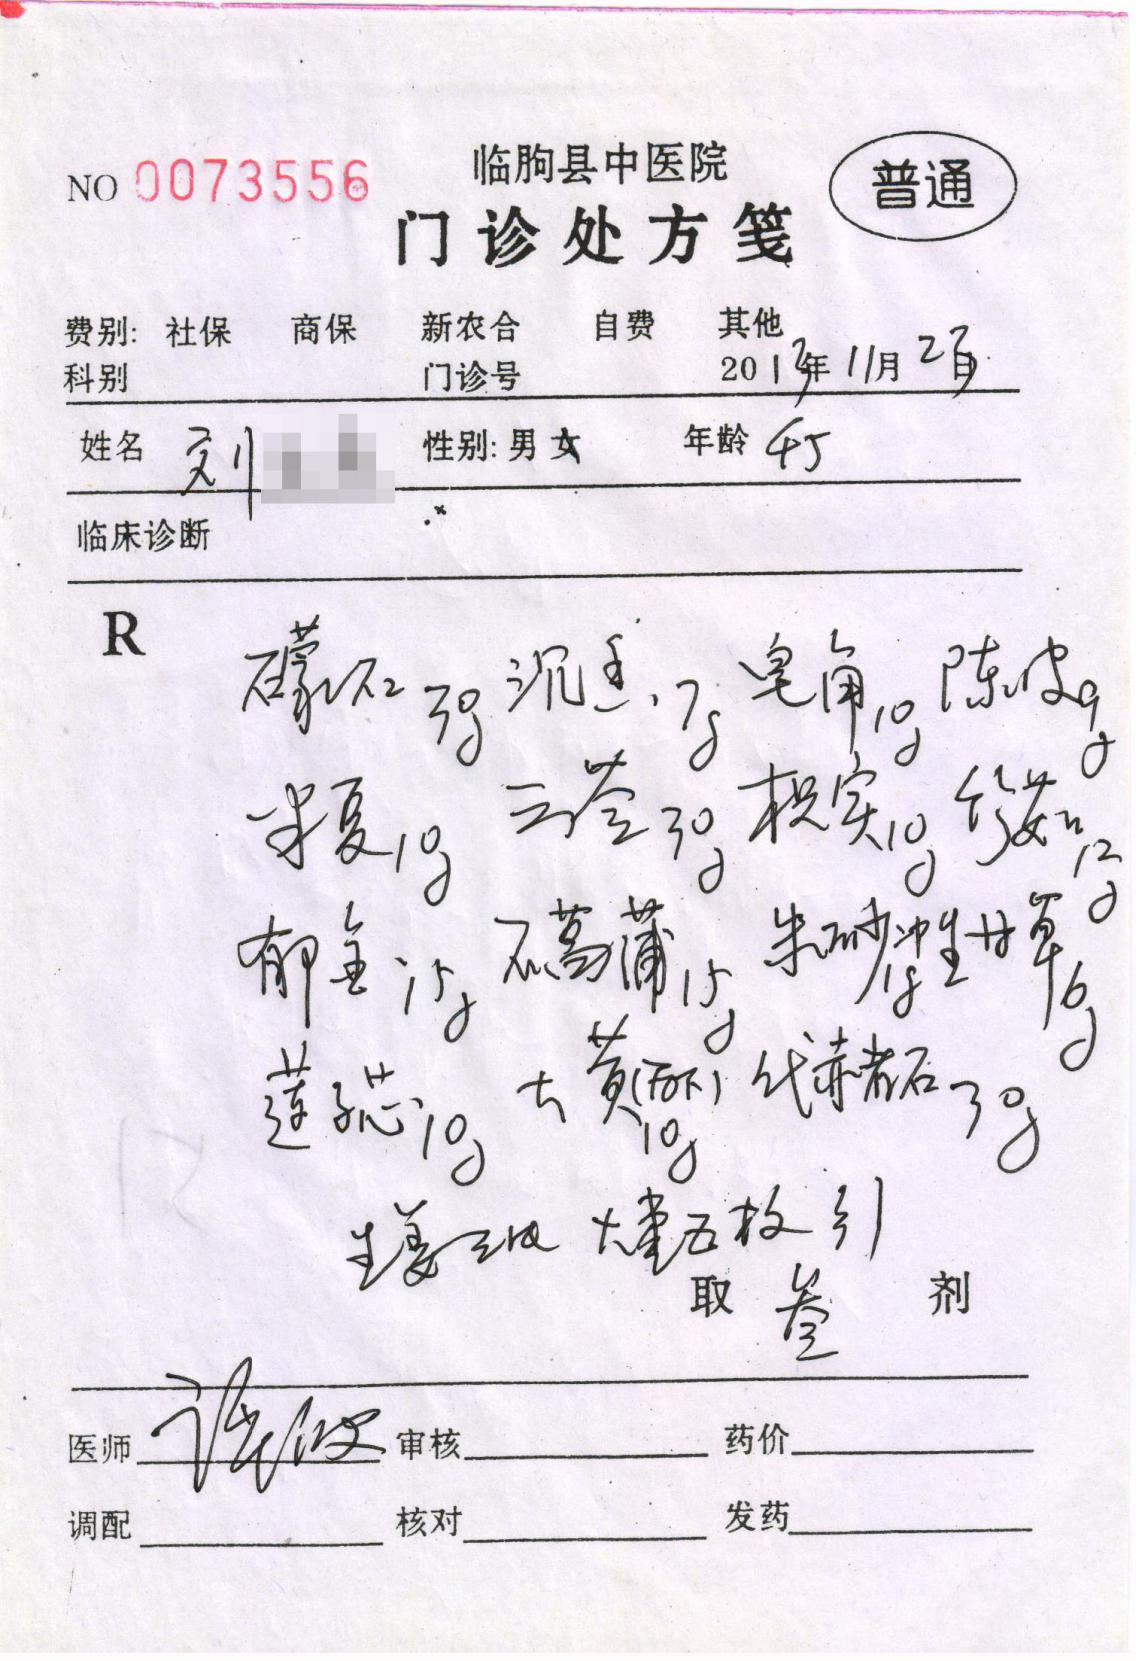 NO 0073556
临朐县中医院
普通
门诊处方笺
费别: 社保 商保 新农合 自费 其他
科别 门诊号 2013年11月2日
姓名 刘 性别: 男 女 年龄
临床诊断
R
礞石30g 沉香7g 皂角10g 陈皮9g
半夏10g 云苓30g 枳实10g 竹茹12g
郁金15g 石菖蒲15g 朱砂冲1g 生甘草6g
莲子芯10g 大黄(后下)10g 代赭石30g
生姜三片 大枣五枚 引
取 叁 剂
医师 审核 药价
调配 核对 发药